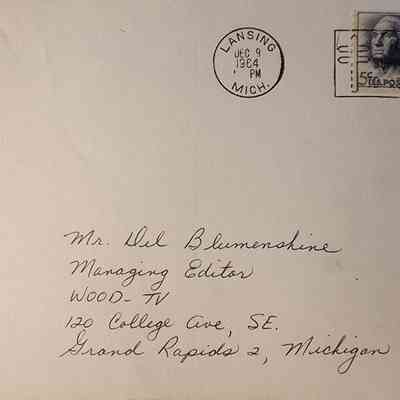 LANSING
DEC 9
1964
PM
MICH.
5c
Mr. Del Blumenshine
Managing Editor
WOOD-TV
120 College Ave, SE.
Grand Rapids 2, Michigan